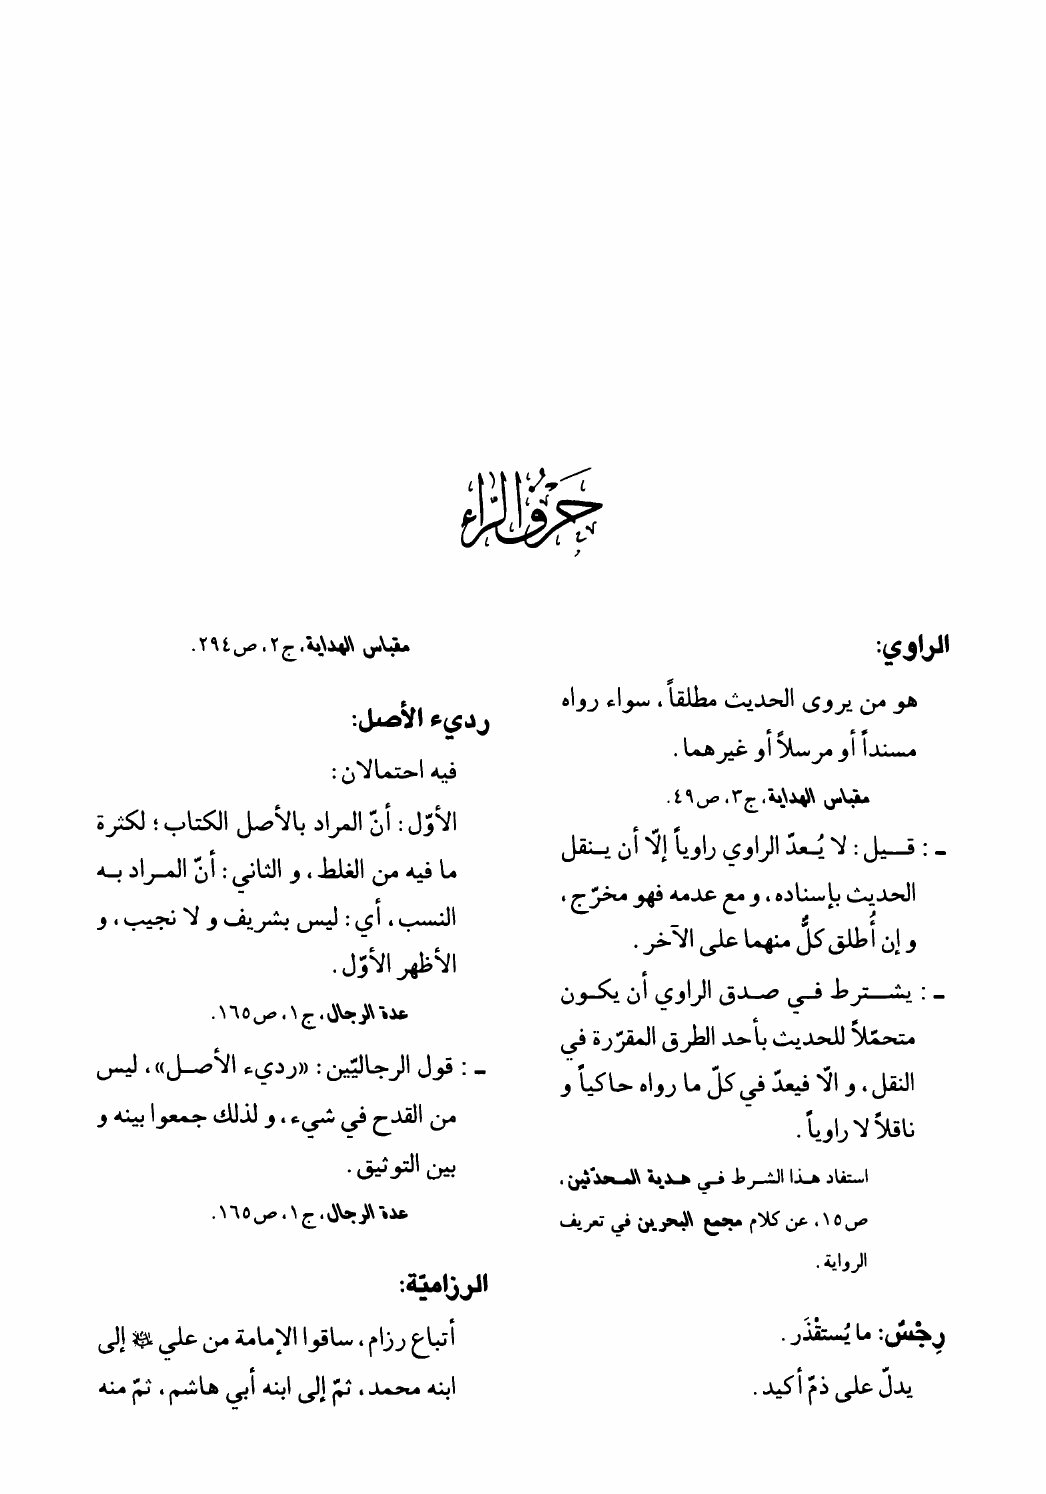 حَرْفُ الرَّاء
الراوي:
هو من يروى الحديث مطلقاً، سواء رواه
مسنداً أو مرسلاً أو غيرهما.
مقباس الهداية، ج٣، ص٤٩.
ـ : قـيـل: لا يُـعدّ الراوي راوياً إلّا أن يـنقل
الحديث بإسناده، و مع عدمه فهو مخرّج،
و إن أُطلق كلٌّ منهما على الآخر.
ـ : يشـترط في صدق الراوي أن يكون
متحمّلاً للحديث بأحد الطرق المقرّرة في
النقل، و الّا فيعدّ في كلّ ما رواه حاكياً و
ناقلاً لا راوياً.
استفاد هذا الشرط في هدية المحدّثين،
ص١٥، عن كلام مجمع البحرين في تعريف
الرواية.
رِجْسٌ: ما يُستقْذَر.
يدلّ على ذمّ أكيد.
مقباس الهداية، ج٢، ص٢٩٤.
رديء الأصل:
فيه احتمالان:
الأوّل: أنّ المراد بالأصل الكتاب؛ لكثرة
ما فيه من الغلط، و الثاني: أنّ المراد به
النسب، أي: ليس بشريف و لا نجيب، و
الأظهر الأوّل.
عدة الرجال، ج١، ص١٦٥.
ـ : قول الرجاليّين: «رديء الأصل»، ليس
من القدح في شيء، و لذلك جمعوا بينه و
بين التوثيق.
عدة الرجال، ج١، ص١٦٥.
الرزاميّة:
أتباع رزام، ساقوا الإمامة من علي ﷷ إلى
ابنه محمد، ثمّ إلى ابنه أبي هاشم، ثمّ منه